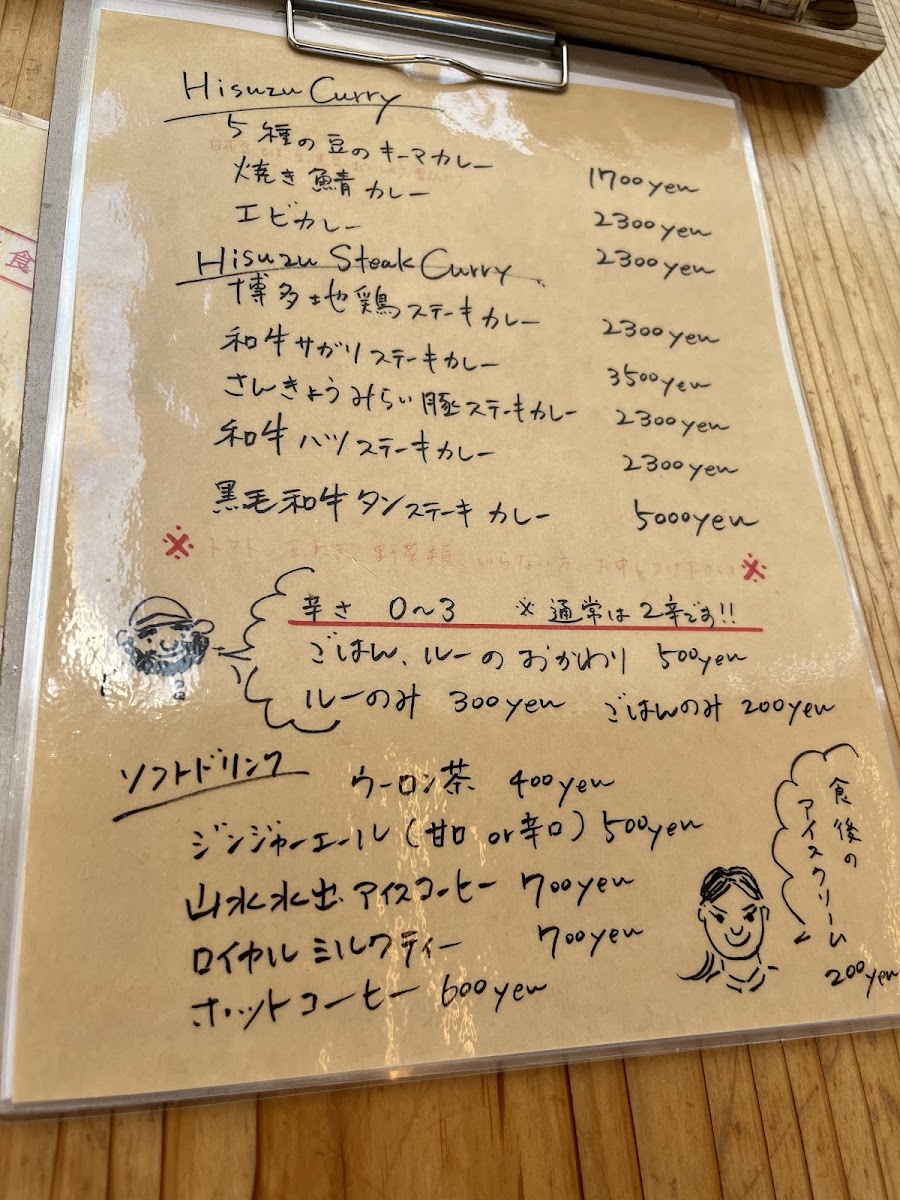 Hisuzu Curry
5種の豆のキーマカレー 1700yen
焼き鯖カレー 2300yen
エビカレー 2300yen
Hisuzu Steak Curry
博多地鶏ステーキカレー 2300yen
和牛サガリステーキカレー 3500yen
さんきょうみらい豚ステーキカレー 2300yen
和牛ハツステーキカレー 2300yen
黒毛和牛タンステーキカレー 5000yen
※トマト、玉ねぎ、野菜類、いらない方、お申しつけ下さい※
辛さ 0〜3 ※通常は2辛です!!
ごはん、ルーのおかわり 500yen
ルーのみ 300yen ごはんのみ 200yen
ソフトドリンク
ウーロン茶 400yen
ジンジャーエール(甘口or辛口) 500yen
山水水出アイスコーヒー 700yen
ロイヤルミルクティー 700yen
ホットコーヒー 600yen
食後の
アイスクリーム
200yen
食